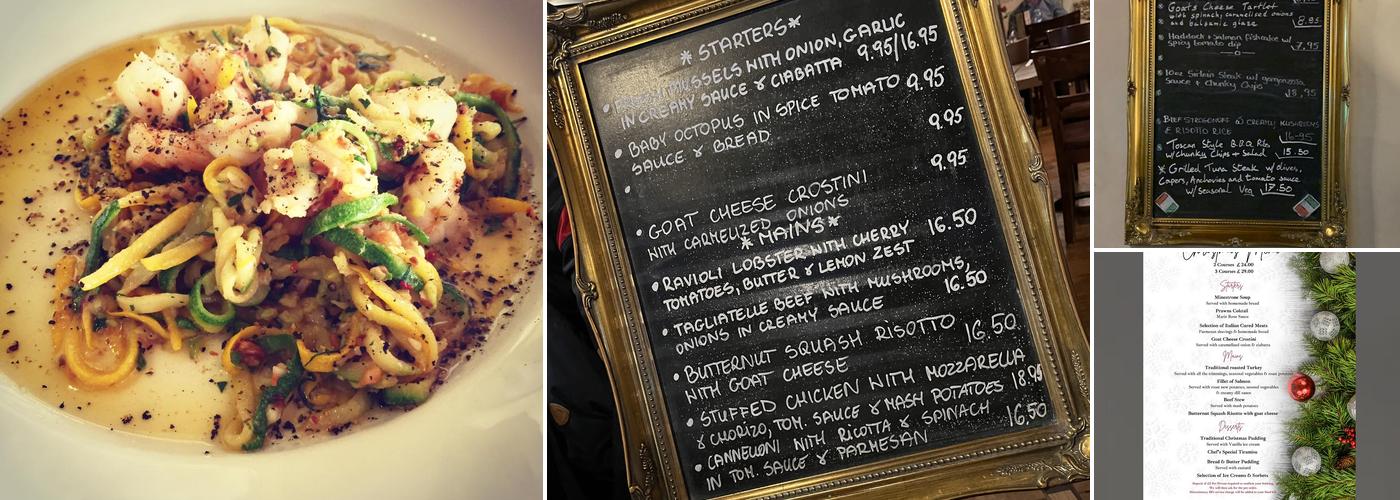 *STARTERS*
FRESH MUSSELS WITH ONION, GARLIC
IN CREAMY SAUCE & CIABATTA 9.95/16.95
BABY OCTOPUS IN SPICE TOMATO 9.95
SAUCE & BREAD
9.95
GOAT CHEESE CROSTINI 9.95
WITH CARMELIZED ONIONS
*MAINS*
RAVIOLI LOBSTER WITH CHERRY
TOMATOES, BUTTER & LEMON ZEST 16.50
TAGLIATELLE BEEF WITH MUSHROOMS,
ONIONS IN CREAMY SAUCE 16.50
BUTTERNUT SQUASH RISOTTO 16.50
WITH GOAT CHEESE
STUFFED CHICKEN WITH MOZZARELLA
& CHORIZO, TOM. SAUCE & MASH POTATOES 18.95
CANNELLONI WITH RICOTTA & SPINASH 16.50
IN TOM. SAUCE & PARMESAN
Goat's Cheese Tartlet
with spinach, caramelised onions
and balsamic glaze 8.95
Haddock & Salmon fishcake w/
spicy tomato dip 7.95
10oz Sirloin Steak w/ gorgonzola
sauce + Chunky Chips 18,95
BEEF STROGONOFF w CREAMY MUSHROOMS
& RISOTTO RICE 16-95
Toscan Style B.B.Q Ribs
w/chunky Chips + Salad 15.50
Grilled Tuna Steak w/ olives,
Capers, Anchovies and tomato sauce
w/seasonal Veg 17.50
2 Courses £ 24.00
3 Courses £ 29.00
Starters
Minestrone Soup
Served with homemade bread
Prawns Coktail
Marie Rose Sauce
Selection of Italian Cured Meats
Parmesan shavings & homemade bread
Goat Cheese Crostini
Served with caramelised onion & ciabatta
Mains
Traditional roasted Turkey
Served with all the trimmings, seasonal vegetables & roast
Fillet of Salmon
Served with roast new potatoes, seasonal vegetables
& creamy dill sauce
Beef Stew
Served with mash potatoes
Butternut Squash Risotto with goat cheese
Desserts
Traditional Christmas Pudding
Served with Vanilla ice cream
Chef's Special Tiramisu
Bread & Butter Pudding
Served with custard
Selection of Ice Creams & Sorbets